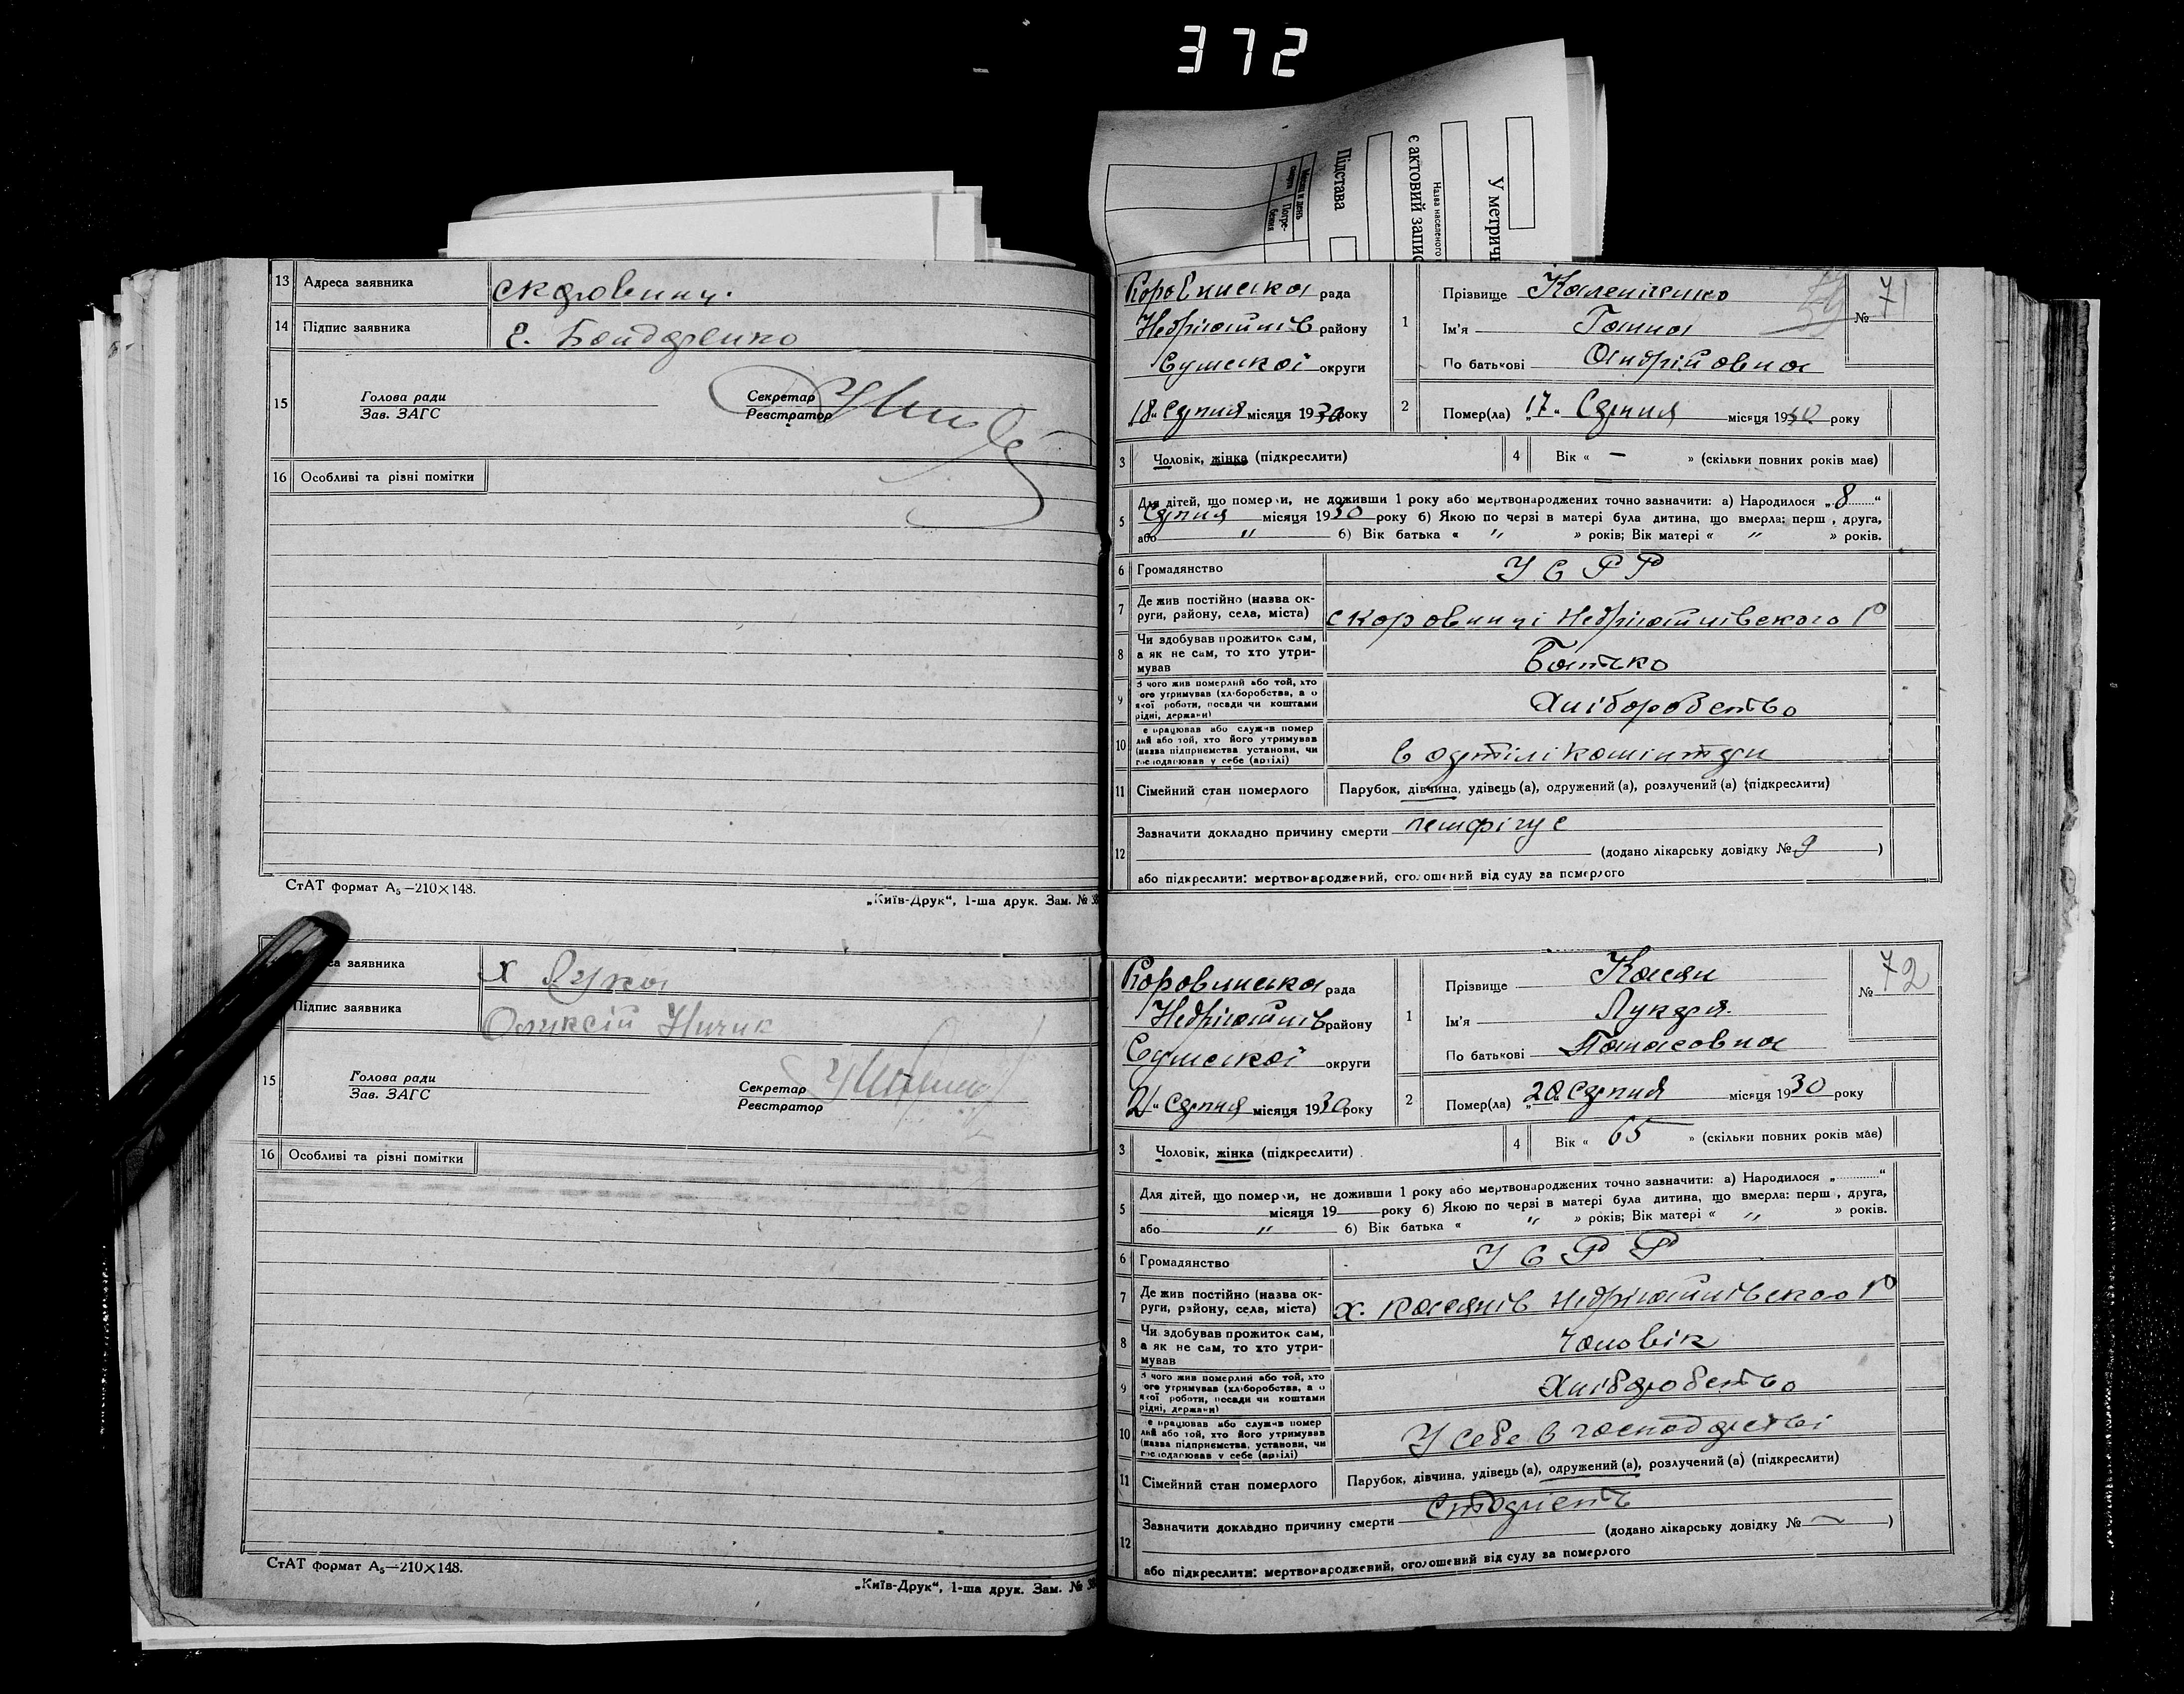 372
У метричн
Назва населеного
є актовий запис
Підстава
Місяц и день
смерти
Погре-
бения
13 Адреса заявника
14 Підпис заявника Є. Бондаренко
15 Голова ради
Зав. ЗАГС
Секретар
Реєстратор
16 Особливі та різні помітки
СтАТ формат А5—210×148.
„Київ-Друк“, 1-ша друк. Зам. №
са заявника х Лука
Підпис заявника Олексій
15 Голова ради
Зав. ЗАГС
Секретар
Реєстратор
16 Особливі та різні помітки
СтАТ формат А5—210×148.
„Київ-Друк“, 1-ша друк. Зам. №
Коровинська рада
Недригайлів району
Сумської округи
„18“ Серпня місяця 1930 року
1 Прізвище
Ім'я Ганна
По батькові Андрійовна
№ 71
2 Помер(ла) „17“ Серпня місяця 1930 року
3 Чоловік, жінка (підкреслити)
4 Вік « — » (скільки повних років має)
5 Для дітей, що померли, не доживши 1 року або мертвонароджених точно зазначити: а) Народилося „8“
Серпня місяця 1930 року б) Якою по черзі в матері була дитина, що вмерла: перш , друга,
або " б) Вік батька « " » років; Вік матері « " » років.
6 Громадянство УСРР
7 Де жив постійно (назва ок-
руги, району, села, міста) с Коровинці Недригайлівского р
8 Чи здобував прожиток сам,
а як не сам, то хто утри-
мував Батько
9 З чого жив померлий або той, хто
ого утримував (хліборобства, а о
якої роботи, посади чи коштами
рідні, держави) Хліборобство
10 е працював або служив помер
лий або той, хто його утримував
(назва підприємства установи, чи
господарював у себе (артілі) в артілі комінтерн
11 Сімейний стан померлого Парубок, дівчина, удівець (а), одружений (а), розлучений (а) (підкреслити)
12 Зазначити докладно причину смерти пемфігус
(додано лікарську довідку № 9 )
або підкреслити: мертвонароджений, оголошений від суду за померлого
Коровинська рада
Недригайлів району
Сумської округи
21“ Серпня місяця 1930 року
1 Прізвище Касян
Ім'я Лукеря
По батькові Панасовна
№ 72
2 Помер(ла) „20 Серпня місяця 1930 року
3 Чоловік, жінка (підкреслити)
4 Вік « 65 » (скільки повних років має)
5 Для дітей, що померли, не доживши 1 року або мертвонароджених точно зазначити: а) Народилося „ “
місяця 19 року б) Якою по черзі в матері була дитина, що вмерла: перш , друга,
або " б) Вік батька « " » років; Вік матері « " » років.
6 Громадянство УСРР
7 Де жив постійно (назва ок-
руги, району, села, міста) х. Касянів Недригайлівского р
8 Чи здобував прожиток сам,
а як не сам, то хто утри-
мував Чоловік
9 З чого жив померлий або той, хто
ого утримував (хліборобства, а о
якої роботи, посади чи коштами
рідні, держави) Хліборобство
10 е працював або служив помер
лий або той, хто його утримував
(назва підприємства, установи, чи
господарював у себе (артілі) У себе в господарстві
11 Сімейний стан померлого Парубок, дівчина, удівець (а), одружений (а), розлучений (а) (підкреслити)
12 Зазначити докладно причину смерти Старість
(додано лікарську довідку № — )
або підкреслити: мертвонароджений, оголошений від суду за померлого